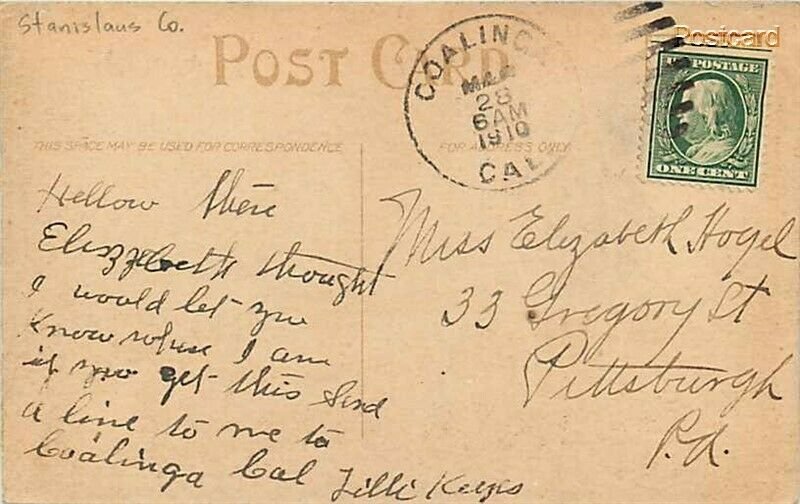 Stanislaus Co.
Postcard
POST CARD
COALINGA
MAR
28
6 AM
1910
CAL
U.S. POSTAGE
ONE CENT
THIS SPACE MAY BE USED FOR CORRESPONDENCE
FOR ADDRESS ONLY
Hellow there
Elizzebeth thought
I would let you
Know where I am
if you get this send
a line to me to
Coalinga Cal
Miss Elizabeth Hogel
33 Gregory St
Pittsburgh
Pa.